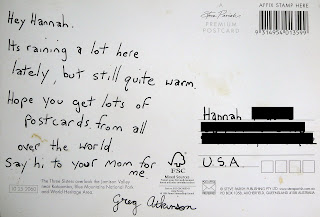 Hey Hannah.
Its raining a lot here
lately, but still quite warm.
Hope you get lots of
postcards from all
over the world.
Say hi to your Mom for
me.
Greg Atkinson
Steve Parish
PREMIUM
POSTCARD
AFFIX STAMP HERE
9 314954 013599
Hannah
U.S.A
The Three Sisters overlook the Jamison Valley
near Katoomba, Blue Mountains National Park
and World Heritage Area.
FSC
Mixed Sources
© STEVE PARISH PUBLISHING PTY LTD